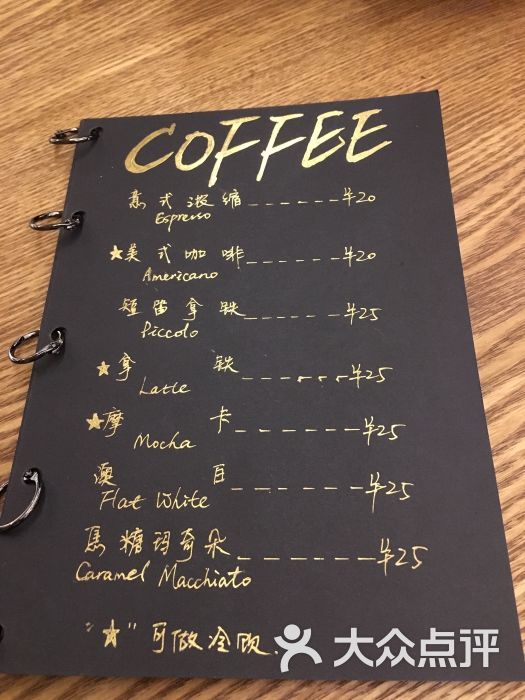 COFFEE
意式浓缩------¥20
Espresso
★美式咖啡------¥20
Americano
短笛拿铁------¥25
Piccolo
★拿铁------¥25
Latte
★摩卡------¥25
Mocha
澳白------¥25
Flat White
焦糖玛奇朵------¥25
Caramel Macchiato
"★"可做冷饮.
大众点评